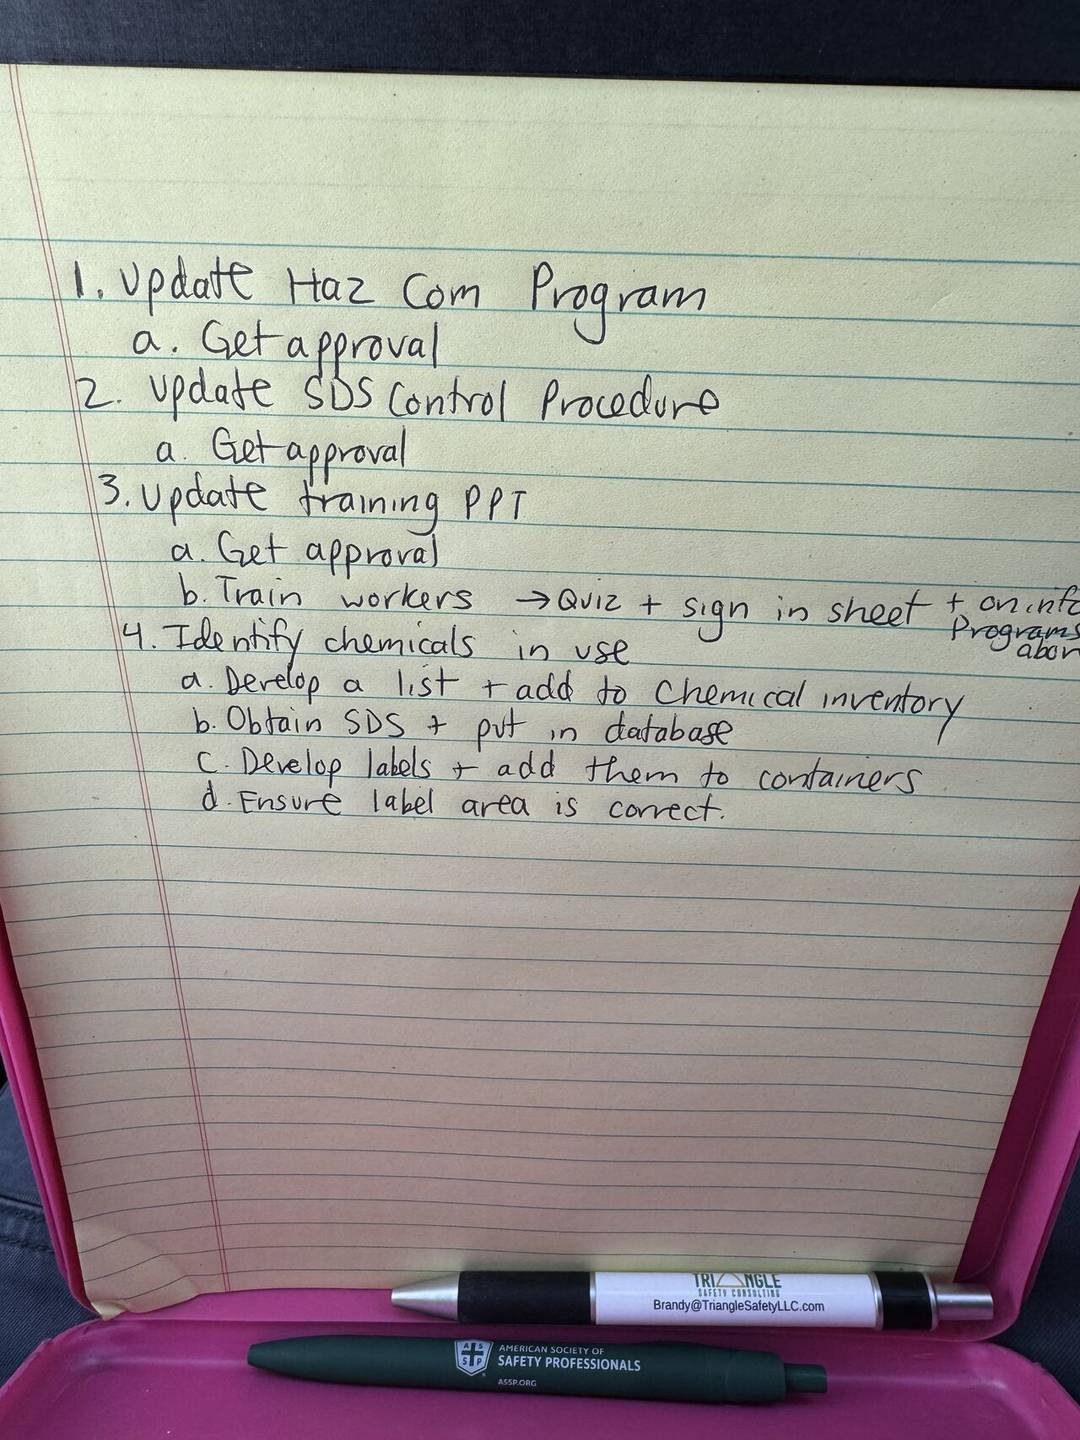 1. Update Haz Com Program
a. Get approval
2. Update SDS Control Procedure
a. Get approval
3. Update training PPT
a. Get approval
b. Train workers → Quiz + sign in sheet + on info
Programs
abov
4. Identify chemicals in use
a. Develop a list + add to Chemical inventory
b. Obtain SDS + put in database
c. Develop labels + add them to containers
d. Ensure label area is correct.
TRIANGLE
SAFETY CONSULTING
Brandy@TriangleSafetyLLC.com
ASSP
AMERICAN SOCIETY OF
SAFETY PROFESSIONALS
ASSP.ORG